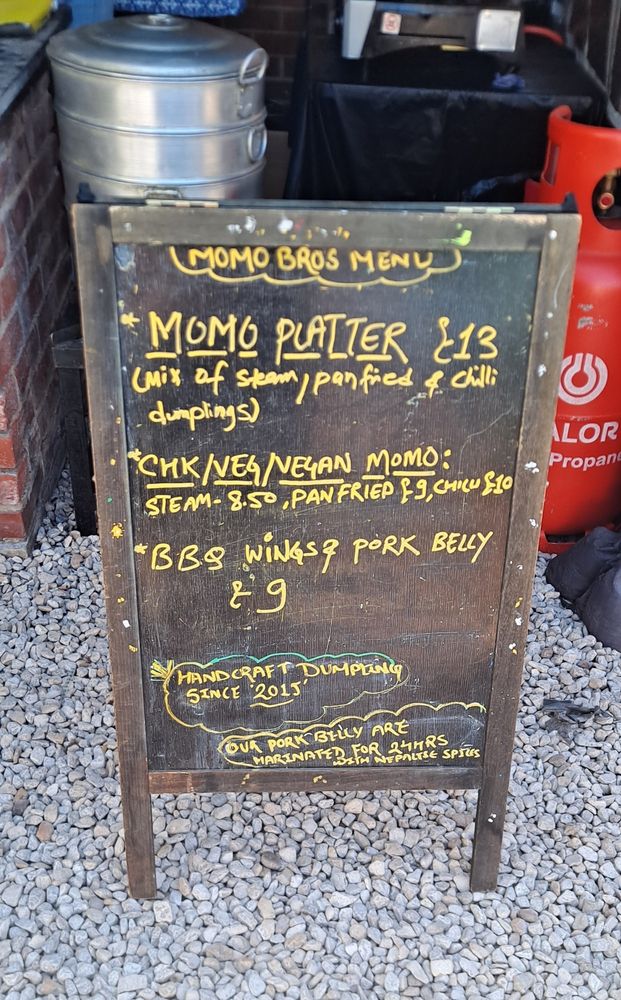 MOMO BROS MENU
* MOMO PLATTER £13
(Mix of steam, panfried & chilli
dumplings)
*CHK/VEG/VEGAN MOMO:
STEAM- 8.50, PANFRIED £9, CHILLI £10
*BBQ WINGS & PORK BELLY
£9
HANDCRAFT DUMPLING
SINCE '2015'
OUR PORK BELLY ARE
MARINATED FOR 24HRS
WITH NEPALESE SPICES
ALOR
Propane